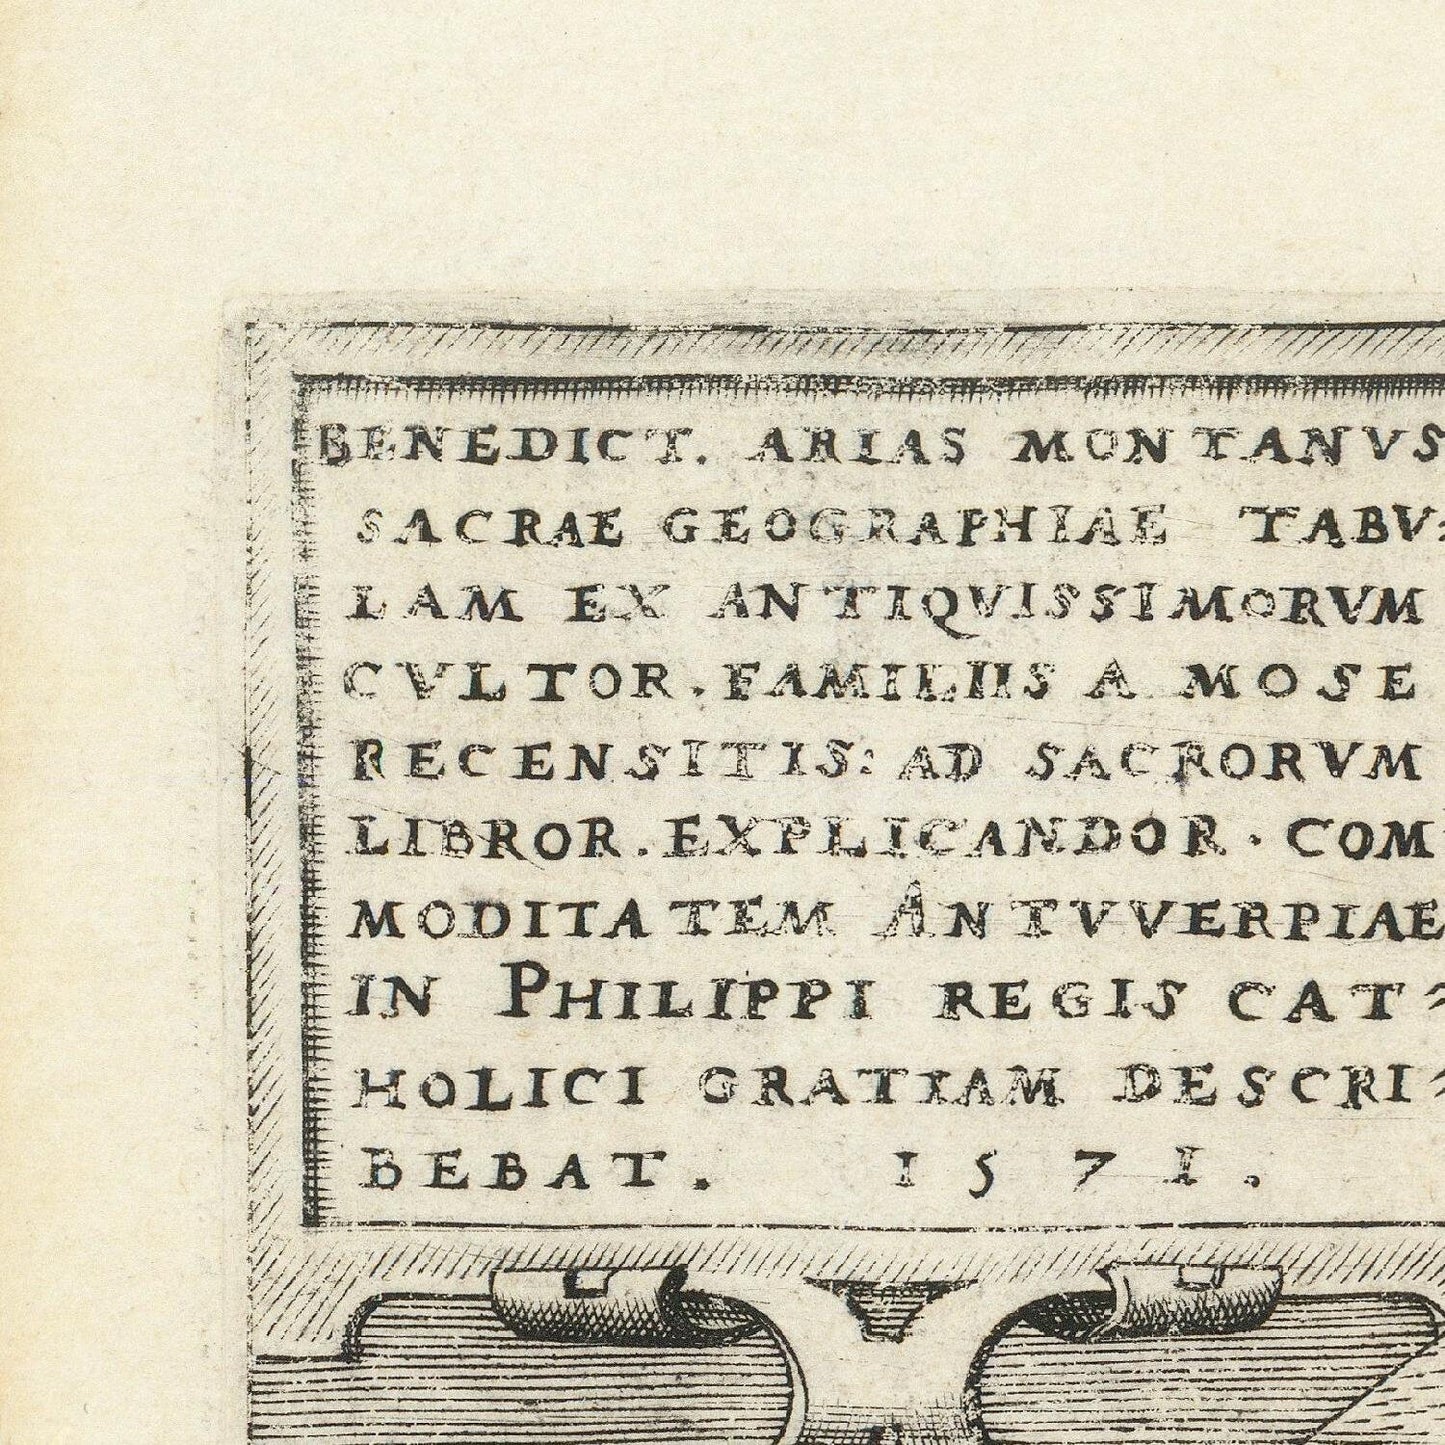 BENEDICT. ARIAS MONTANVS
SACRAE GEOGRAPHIAE TABV⸗
LAM EX ANTIQVISSIMORVM
CVLTOR. FAMILIIS A MOSE
RECENSITIS: AD SACRORVM
LIBROR. EXPLICANDOR. COM⸗
MODITATEM ANTVVERPIAE
IN PHILIPPI REGIS CAT⸗
HOLICI GRATIAM DESCRI⸗
BEBAT. 1571.